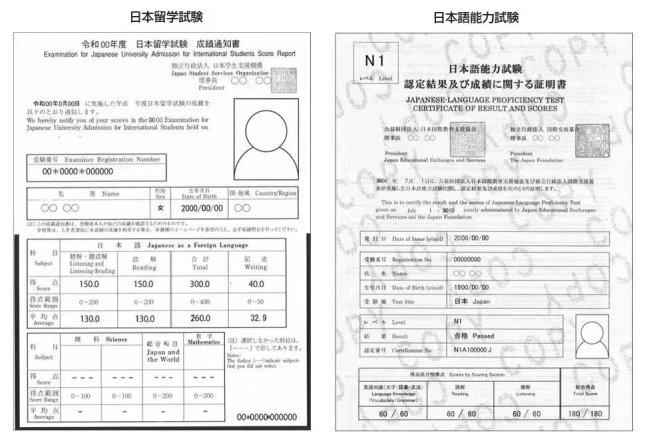 日本留学試験
令和00年度 日本留学試験 成績通知書
Examination for Japanese University Admission for International Students Score Report
独立行政法人 日本学生支援機構
Japan Student Services Organization
理事長 ○○ ○○
President
令和00年0月00日 に実施した平成 年度日本留学試験の成績を
以下のとおり通知します。
We hereby notify you of your scores in the 0000 Examination for
Japanese University Admission for International Students held on
受験番号 Examinee Registration Number
00*0000*000000
名 前 Name
性別 Sex
生年月日 Date of Birth
国・地域 Country/Region
○○ ○○
女
2000/00/00
○○
科 目 Subject
日 本 語 Japanese as a Foreign Language
聴解・聴読解 Listening and Listening-Reading
読 解 Reading
合 計 Total
記 述 Writing
得 点 Score 150.0 150.0 300.0 40.0
得点範囲 Score Range 0~200 0~200 0~400 0~50
平 均 点 Average 130.0 130.0 260.0 32.9
科 目 Subject
理 科 Science
総合科目 Japan and the World
数 学 Mathematics
(注) 選択しなかった科目は、
「---」で示してあります。
Notes:
The dashes (---)indicate subjects
that you did not select.
得 点 Score --- --- --- ---
得点範囲 Score Range 0~100 0~100 0~200 0~200
平 均 点 Average - - - -
00*0000*000000
日本語能力試験
N1
レベル Level
日本語能力試験
認定結果及び成績に関する証明書
JAPANESE-LANGUAGE PROFICIENCY TEST
CERTIFICATE OF RESULT AND SCORES
公益財団法人 日本国際教育支援協会
理事長 ○○ ○○
President
Japan Educational Exchanges and Services
独立行政法人 国際交流基金
理事長 ○○ ○○
President
The Japan Foundation
This is to certify the result and the scores of Japanese-Language Proficiency Test
given on July 0000 jointly administered by Japan Educational Exchanges
and Services and the Japan Foundation
発 行 日 Date of Issue (y/m/d) 2000/00/00
受験番号 Registration No. 00000000
氏 名 Name ○○ ○○
生年月日 Date of Birth (y/m/d) 1900/00/00
受 験 地 Test Site 日本 Japan
レ ベ ル Level N1
結 果 Result 合格 Passed
認定番号 Certification No. N1A100000J
得点区分別得点 Scores by Scoring Section
言語知識(文字・語彙・文法) Language Knowledge (Vocabulary/Grammar)
読解 Reading
聴解 Listening
総合得点 Total Score
60 / 60 60 / 60 60 / 60 180 / 180
COPY